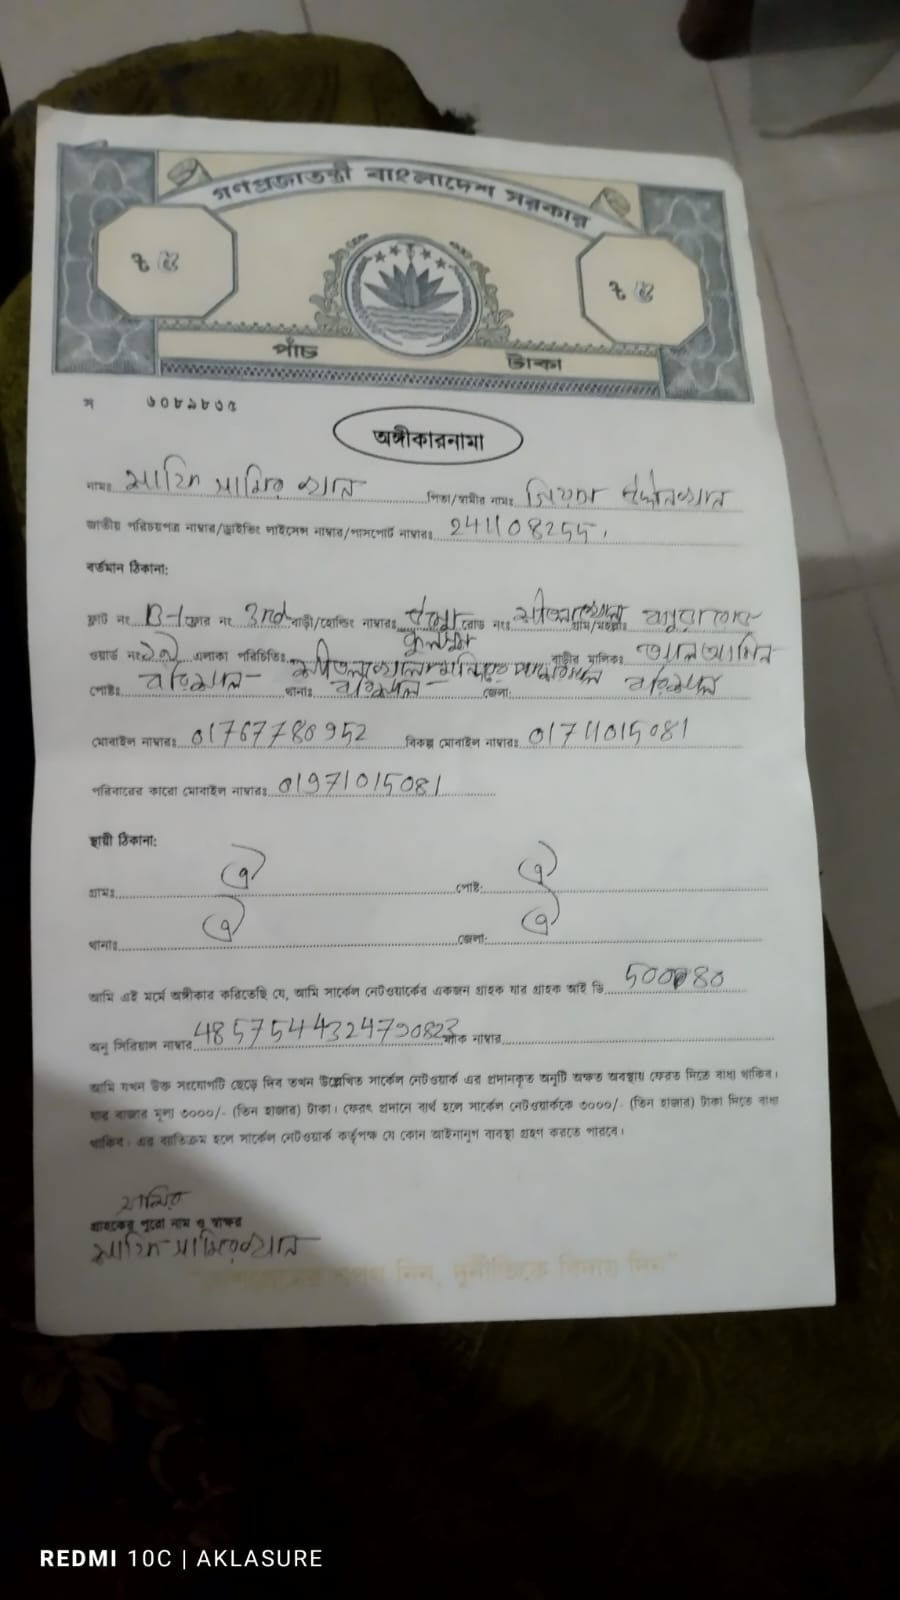 গণপ্রজাতন্ত্রী বাংলাদেশ সরকার
৳ ৫ ৳ ৫
পাঁচ টাকা
অঙ্গীকারনামা
নামঃ সাফি সামির খান পিতা/স্বামীর নামঃ
জাতীয় পরিচয়পত্র নাম্বার/ড্রাইভিং লাইসেন্স নাম্বার/পাসপোর্ট নাম্বারঃ 241108255
বর্তমান ঠিকানা:
ফ্লাট নং B-1 ফ্লোর নং 3rd বাড়ী/হোল্ডিং নাম্বারঃ রোড নং গ্রাম/মহল্লাঃ
ওয়ার্ড নং এলাকা পরিচিতিঃ বাড়ীর মালিকঃ আলআমিন
পোষ্টঃ বরিশাল থানাঃ বরিশাল জেলা: বরিশাল
মোবাইল নাম্বারঃ 01767780952 বিকল্প মোবাইল নাম্বারঃ 01711015081
পরিবারের কারো মোবাইল নাম্বারঃ 01971015081
স্থায়ী ঠিকানা:
গ্রামঃ ঐ পোষ্ট: ঐ
থানাঃ ঐ জেলা: ঐ
আমি এই মর্মে অঙ্গীকার করিতেছি যে, আমি সার্কেল নেটওয়ার্কের একজন গ্রাহক যার গ্রাহক আই ডি
অনু সিরিয়াল নাম্বার নাম্বার
আমি যখন উক্ত সংযোগটি ছেড়ে দিব তখন উল্লেখিত সার্কেল নেটওয়ার্ক এর প্রদানকৃত অনুটি অক্ষত অবস্থায় ফেরত দিতে বাধ্য থাকিব।
যার বাজার মূল্য ৩০০০/- (তিন হাজার) টাকা। ফেরৎ প্রদানে ব্যর্থ হলে সার্কেল নেটওয়ার্ককে ৩০০০/- (তিন হাজার) টাকা দিতে বাধ্য
থাকিব। এর ব্যতিক্রম হলে সার্কেল নেটওয়ার্ক কর্তৃপক্ষ যে কোন আইনানুগ ব্যবস্থা গ্রহণ করতে পারবে।
সামির
গ্রাহকের পুরো নাম ও স্বাক্ষর
সাফি সামির খান
নিন, দুর্নীতিকে বিদায় দিন"
REDMI 10C | AKLASURE